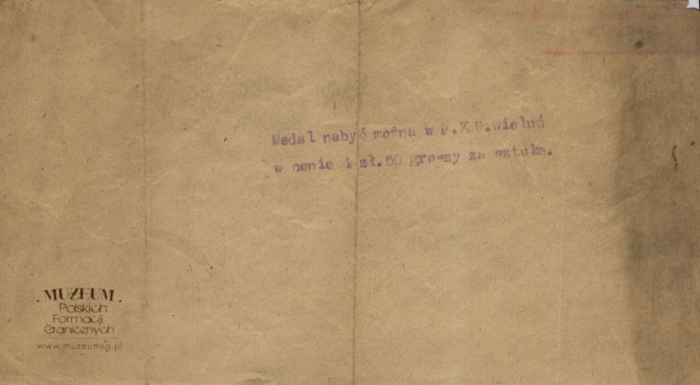 Medal nabyć można w P.K.U.Wieluń
w cenie 4 zł.50 groszy za sztukę.
.MUZEUM.
Polskich
Formacji
Granicznych
www.muzeumsg.pl